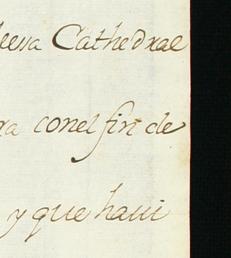 Cathedral
conel fin de
y que haui